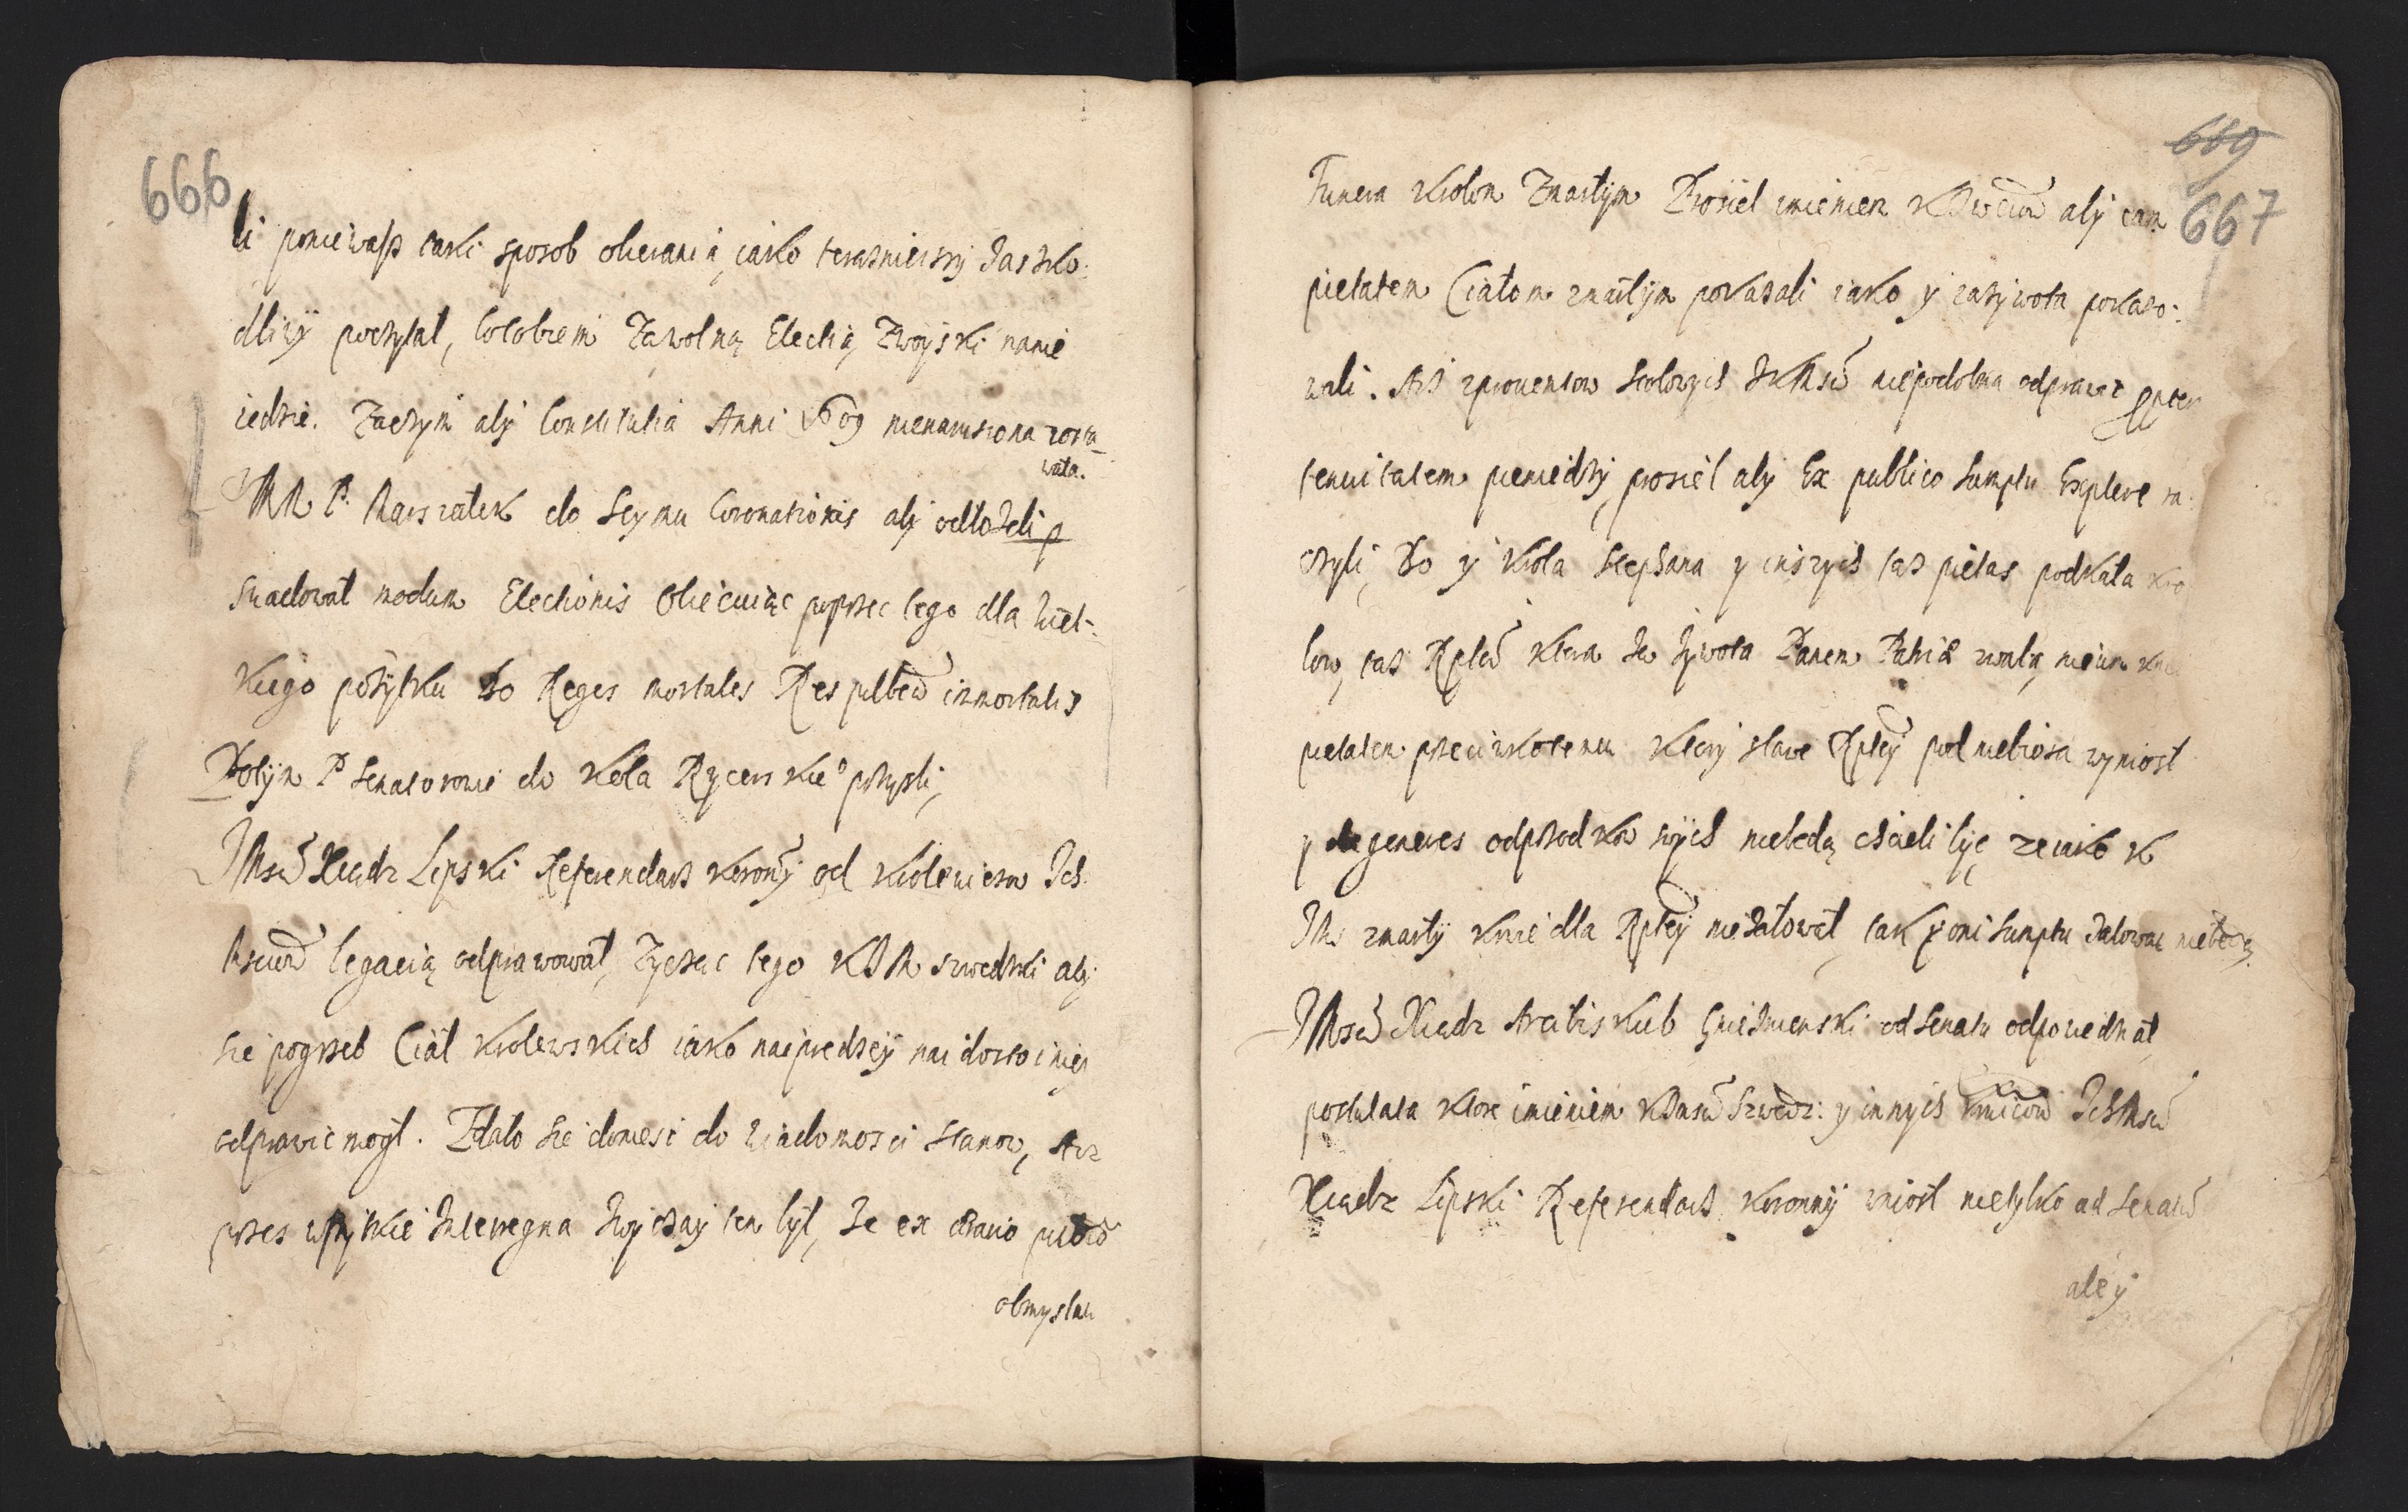 666
li poniewasz taki sposob obierania, iako terasnieiszy Zaszko:
dliwy poczytal, Zawolną Elechią Zwoyski nanie
iedzie. Zaczym aby Constitutia Anni 1609 nienaruszona zosta
wała.
JMM P. Marszałek do Seymu Coronationis aby odłożeli p
suadował modum Electionis Obiecuiąc poprzec tego dla wiel:
kiego pożytku Bo Reges mortales Respubca immortalis
Potym P Senatorowie do Koła Rycerskieo przyszli,
JMsć Xiądz Lipski Referendarz Koronỹ od Krolewicow Ich
Msciow legacią odprawował, Zycząc tego KJM szwedzki aby
sie pogrzeb Ciał Krolewskich iako naipredzey nai dostoiniey
odprawic mogł. Zdało sie doniesc do wiadomosci stanow, Asz
przes wszytkie Interregna Zwyczay ten był, Ze ex Erario publico
obmyslali
669
667
Funera Krolom Zmarłym Prosieł imieniem aby tam
pietatem Ciałom zmarłym pokazali iako y zazywota pokazo:
wali. Asz zprouentow Stolowych IchMsć niepodobna odprawic propter
tenuitatem pieniedzy, prosieł aby Ex publico sumptu Explere ra:
czyli, Bo y Krola Stephana y inszych tas pietas podkała kro
low, tas Rplca ktora Za Zywota Panem Patriæ zwała, nieum
pietatem przeciwkotemu ktory slawe Rptey pod niebiosa wyniosł
y degeneres odprzodkow swych niebedą chcieli byc, ze iako K
JM zmarły krwie dla Rptey nieżałował, tak y oni sumptu Załowac niebedą
JMsć Xiądz Arcibiskub Gnieznienski od Senatu odpowiedział,
postulata ktore imieniem KJMsci Szwedz: y innych Krolewicow IchMsć
Xiądz Lipski Referendarz Koronny wniosł nietylko od Senatu
ale y